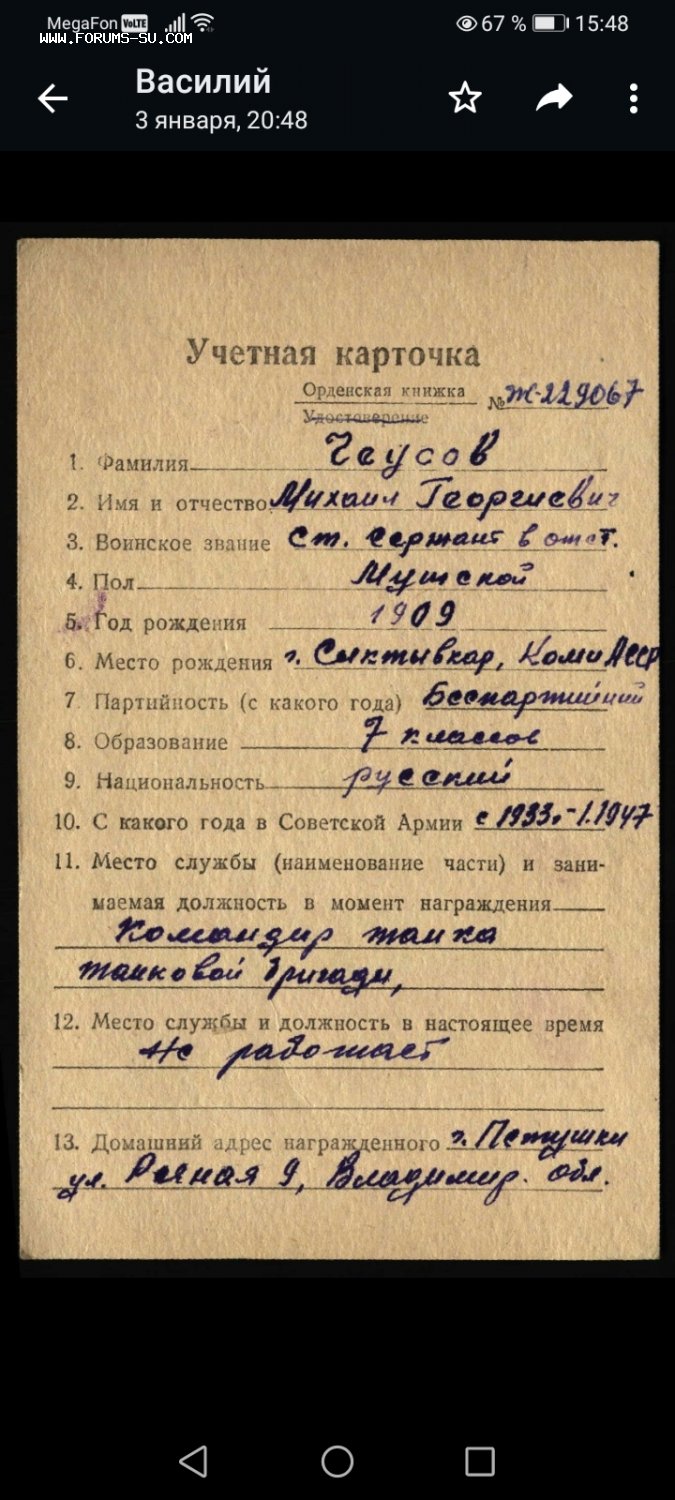 MegaFon VoLTE 67 % 15:48
www.forums-su.com
Василий
3 января, 20:48
Учетная карточка
Орденская книжка № Ж-229067
Удостоверение
1. Фамилия Чеусов
2. Имя и отчество Михаил Георгиевич
3. Воинское звание Ст. Сержант в отст.
4. Пол Мужской
5. Год рождения 1909
6. Место рождения г. Сыктывкар, Коми АССР
7 Партийность (с какого года) Беспартийный
8. Образование 7 классов
9. Национальность русский
10. С какого года в Советской Армии с 1933г-1.1947
11. Место службы (наименование части) и зани-
маемая должность в момент награждения
Командир танка
танковой бригады,
12. Место службы и должность в настоящее время
Не работает
13. Домашний адрес награжденного г. Петушки
ул. 9, Владимир. обл.